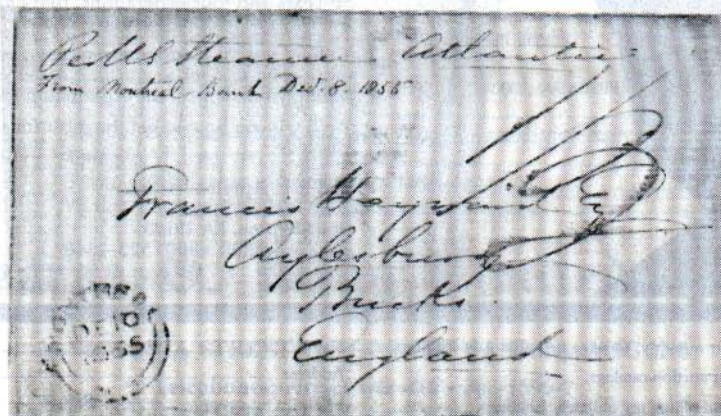 Per US Steamer Atlantic
From Montreal Bank Dec. 8. 1855
Francis Hayward Esq
Aylesbury
Bucks.
England
MONTREAL
DE 10
1855